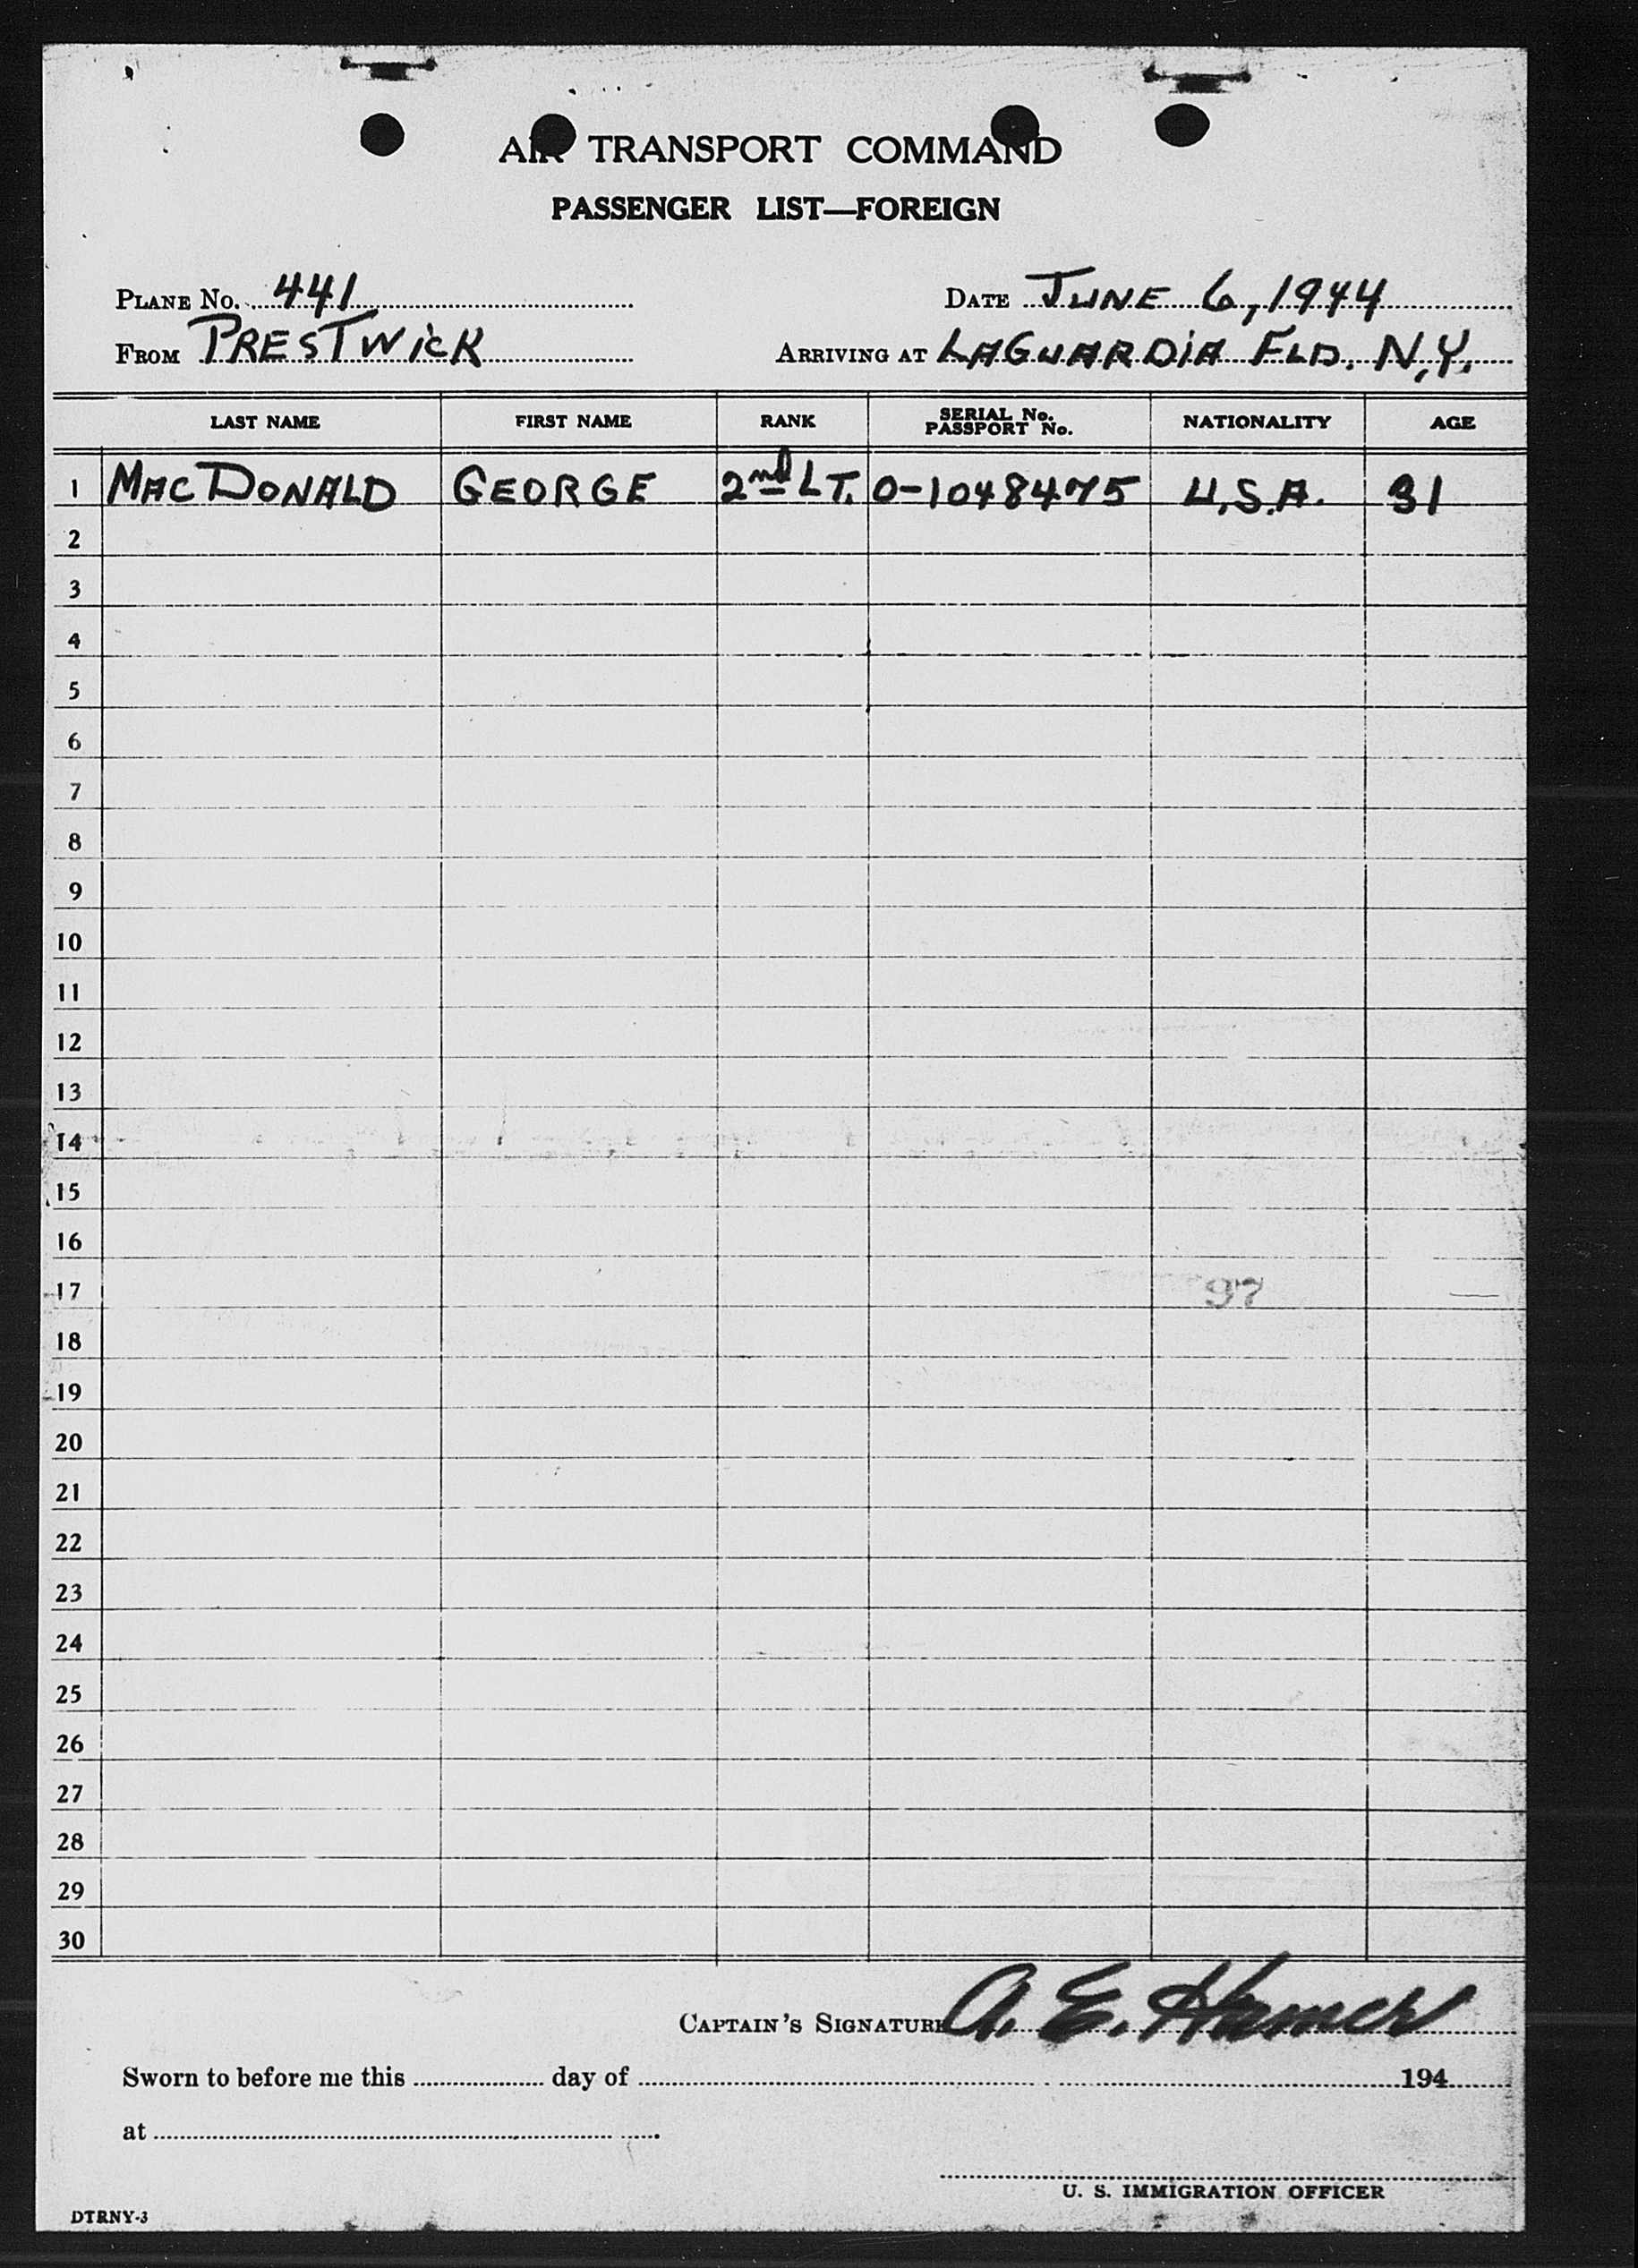 AIR TRANSPORT COMMAND
PASSENGER LIST—FOREIGN
PLANE NO. 441 DATE JUNE 6, 1944
FROM PRESTWICK ARRIVING AT LAGUARDIA FLD. N.Y.
LAST NAME FIRST NAME RANK SERIAL No. PASSPORT No. NATIONALITY AGE
1 MACDONALD GEORGE 2nd LT. O-1048475 U.S.A. 31
2
3
4
5
6
7
8
9
10
11
12
13
14
15
16
17 97
18
19
20
21
22
23
24
25
26
27
28
29
30
CAPTAIN'S SIGNATURE A. E. Hamer
Sworn to before me this day of 194
at
U. S. IMMIGRATION OFFICER
DTRNY-3